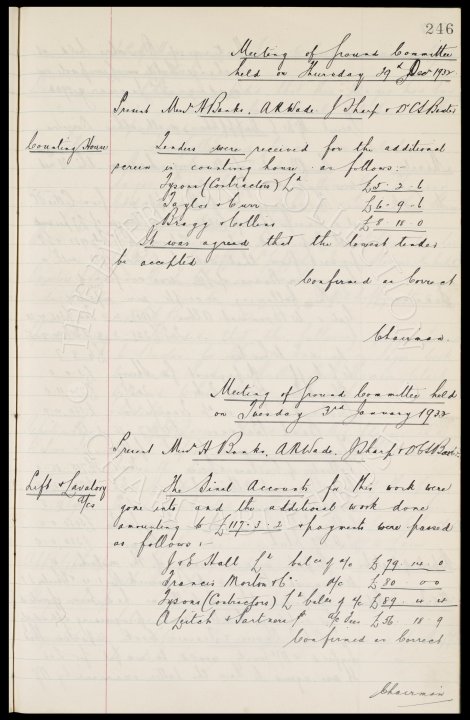 246
Meeting of Ground Committee
held on Thursday 29th Decr 1932
Present Messrs H Banks, A R Wade J Sharp & D C S Baxter
Counting House
Tenders were received for the additional
screen in counting house as follows:-
Tysons (Contractors) Ld £5-2-6
Taylor & Curr £6-9-6
Bragg & Collins £8-10-0
It was agreed that the lowest tender
be accepted
Confirmed as Correct
Chairman.
Meeting of Ground Committee held
on Tuesday 3rd January 1932
Present Messrs H Banks, A R Wade, J Sharp & D C S
Lift & Lavatory
a/cs
The Final Accounts for this work were
gone into, and the additional work done
amounting to £117-3-2 & payments were passed
as follows:-
J & E Hall Ld balce of a/c £79-14-0
Francis Morton & Co a/c £80-0-0
Tysons (Contractors) Ld balce of a/c £89-4-4
A Leitch & Partners a/c fees £36-18-9
Confirmed as Correct
Chairman